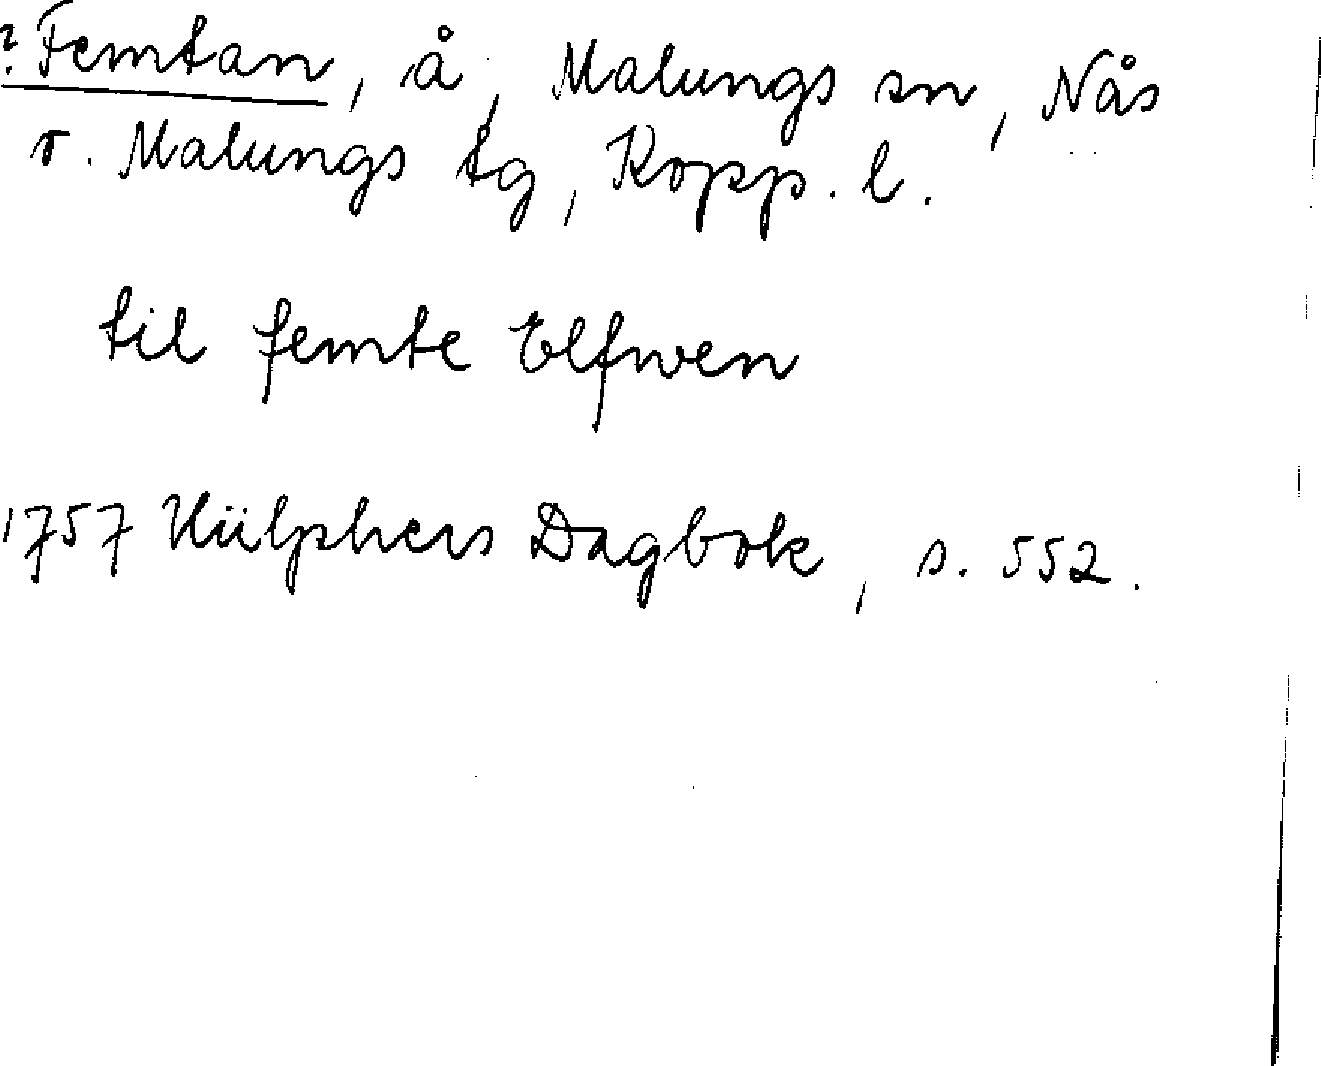 ? Femtan, å, Malungs sn, Nås
o. Malungs tg, Kopp. l.
til femte Elfwen
1757 Hülphers Dagbok, s. 552.